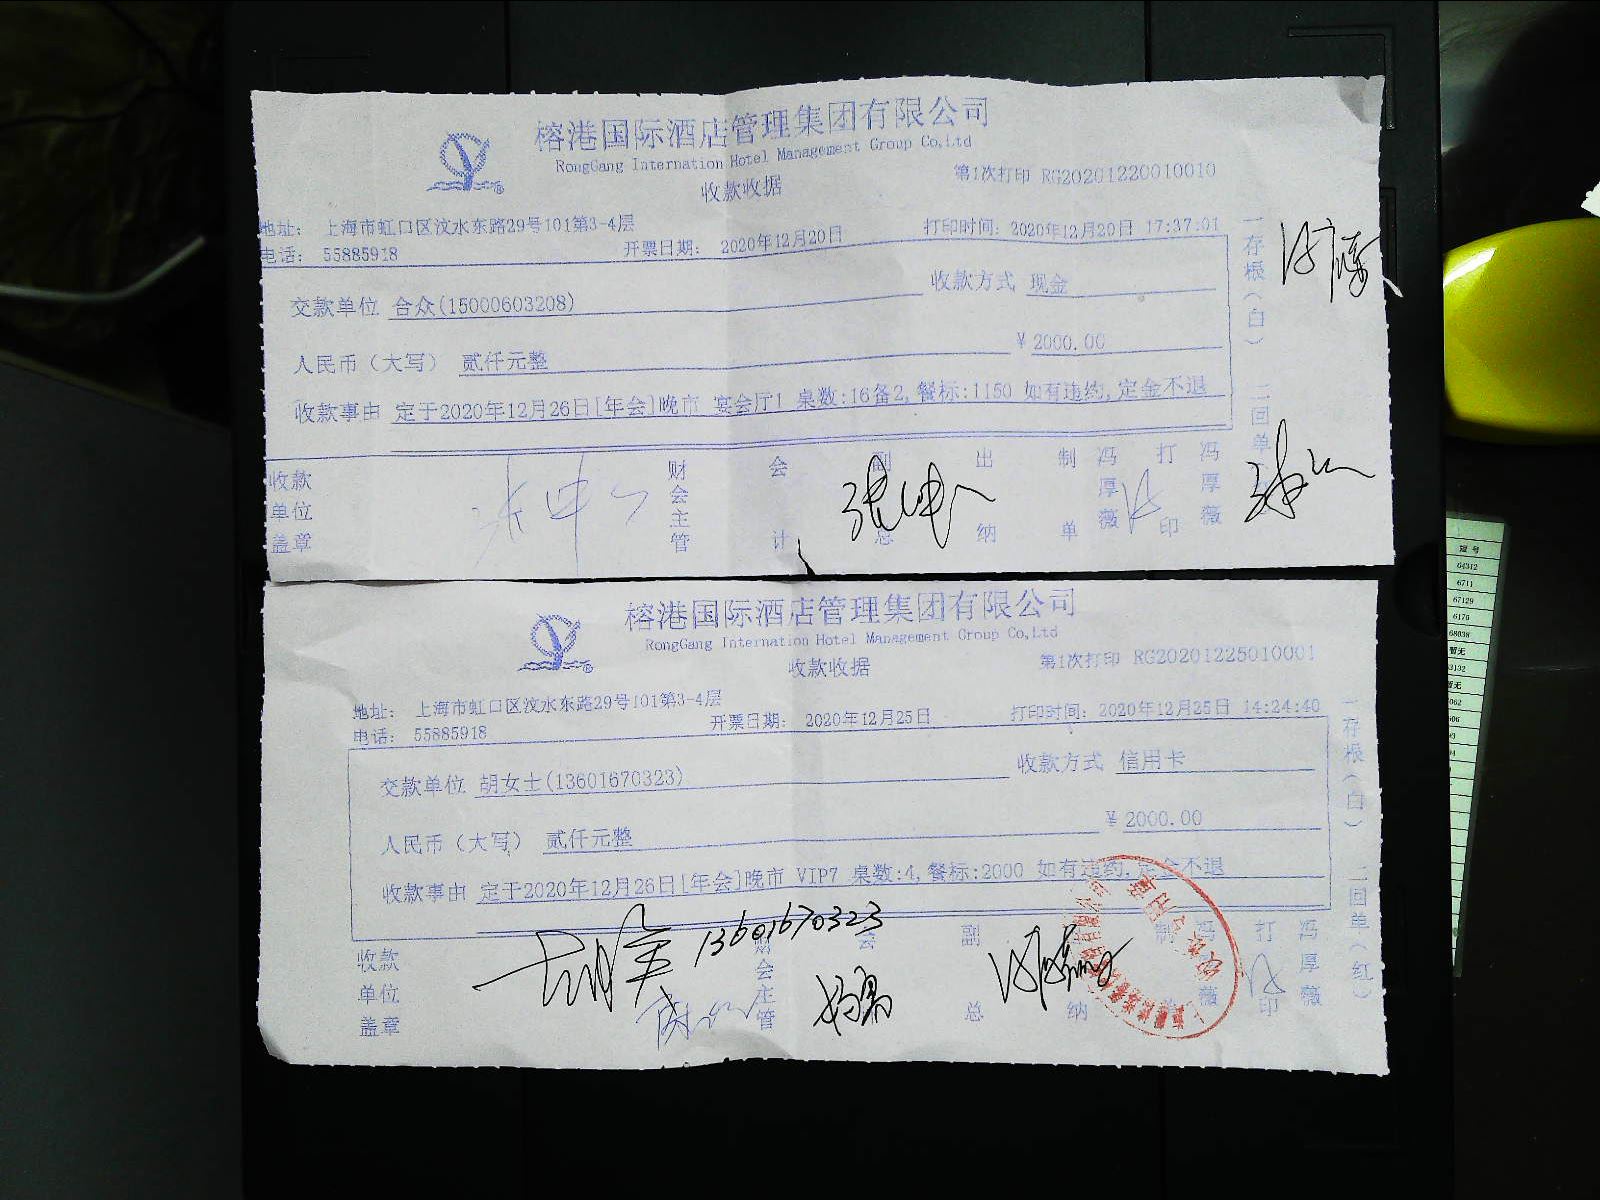 榕港国际酒店管理集团有限公司
RongGang Internation Hotel Management Group Co,Ltd
收款收据
第1次打印 RG20201220010010
地址： 上海市虹口区汶水东路29号101第3-4层
电话： 55885918
开票日期： 2020年12月20日
打印时间：2020年12月20日 17:37:01
交款单位 合众(15000603208)
收款方式 现金
人民币（大写） 贰仟元整
¥ 2000.00
收款事由 定于2020年12月26日[年会]晚市 宴会厅1 桌数:16备2,餐标:1150 如有违约,定金不退
收款单位盖章
财会主管
会计
副总
出纳
制单
冯厚薇
打印
冯厚薇
一存根（白）
二回单
榕港国际酒店管理集团有限公司
RongGang Internation Hotel Management Group Co,Ltd
收款收据
第1次打印 RG20201225010001
地址： 上海市虹口区汶水东路29号101第3-4层
电话： 55885918
开票日期： 2020年12月25日
打印时间：2020年12月25日 14:24:40
交款单位 胡女士(13601670323)
收款方式 信用卡
人民币（大写） 贰仟元整
¥ 2000.00
收款事由 定于2020年12月26日[年会]晚市 VIP7 桌数:4,餐标:2000 如有违约,定金不退
13601670323
收款单位盖章
财会主管
会
副总
纳
制
冯厚薇
打印
冯厚薇
一存根（白）
二回单（红）
64312
6711
67129
6176
68038
暂无